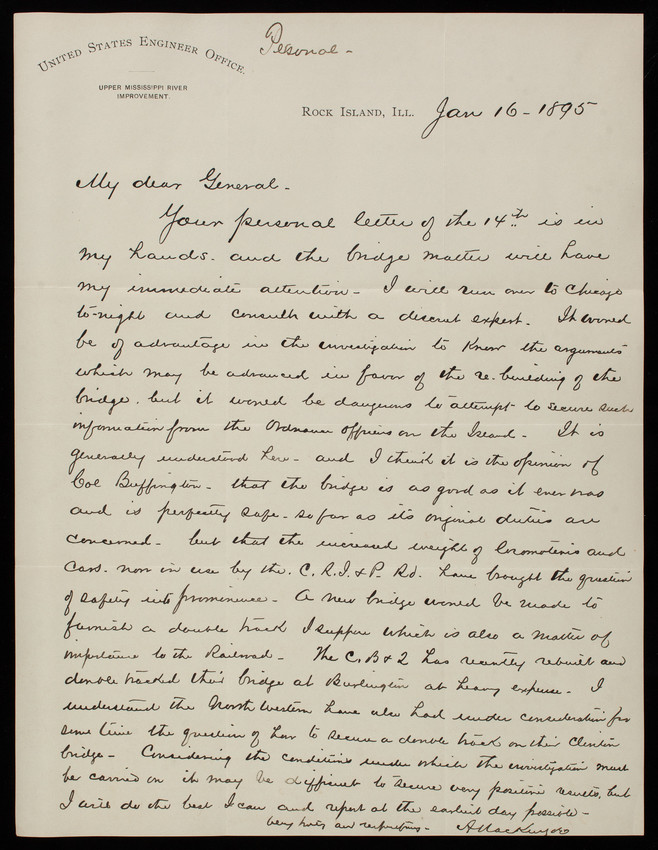 Personal -
UNITED STATES ENGINEER OFFICE.
UPPER MISSISSIPPI RIVER
IMPROVEMENT.
ROCK ISLAND, ILL. Jan 16 - 1895
My dear General -
Your personal letter of the 14th is in
my hands - and the bridge matter will have
my immediate attention - I will run over to Chicago
to-night and consult with a discreet expert - It would
be of advantage in the investigation to know the arguments
which may be advanced in favor of the re-building of the
bridge, but it would be dangerous to attempt to secure such
information from the Ordnance Officers on the Island - It is
generally understood here - and I think it is the opinion of
Col Buffington - that the bridge is as good as it ever was
and is perfectly safe - so far as its original duties are
concerned - but that the increased weight of locomotives and
cars - now in use by the C. R. I. & P. Rd. have brought the question
of safety into prominence - A new bridge would be made to
furnish a double track I suppose which is also a matter of
importance to the Railroad - The C. B & Q has recently rebuilt and
double tracked their bridge at Burlington at heavy expense - I
understand the North Western have also had under consideration for
some time the question of how to secure a double track on their Clinton
bridge - Considering the conditions under which the investigation must
be carried on it may be difficult to secure very positive results, but
I will do the best I can and report at the earliest day possible -
Very truly and respectfully - A Mackenzie